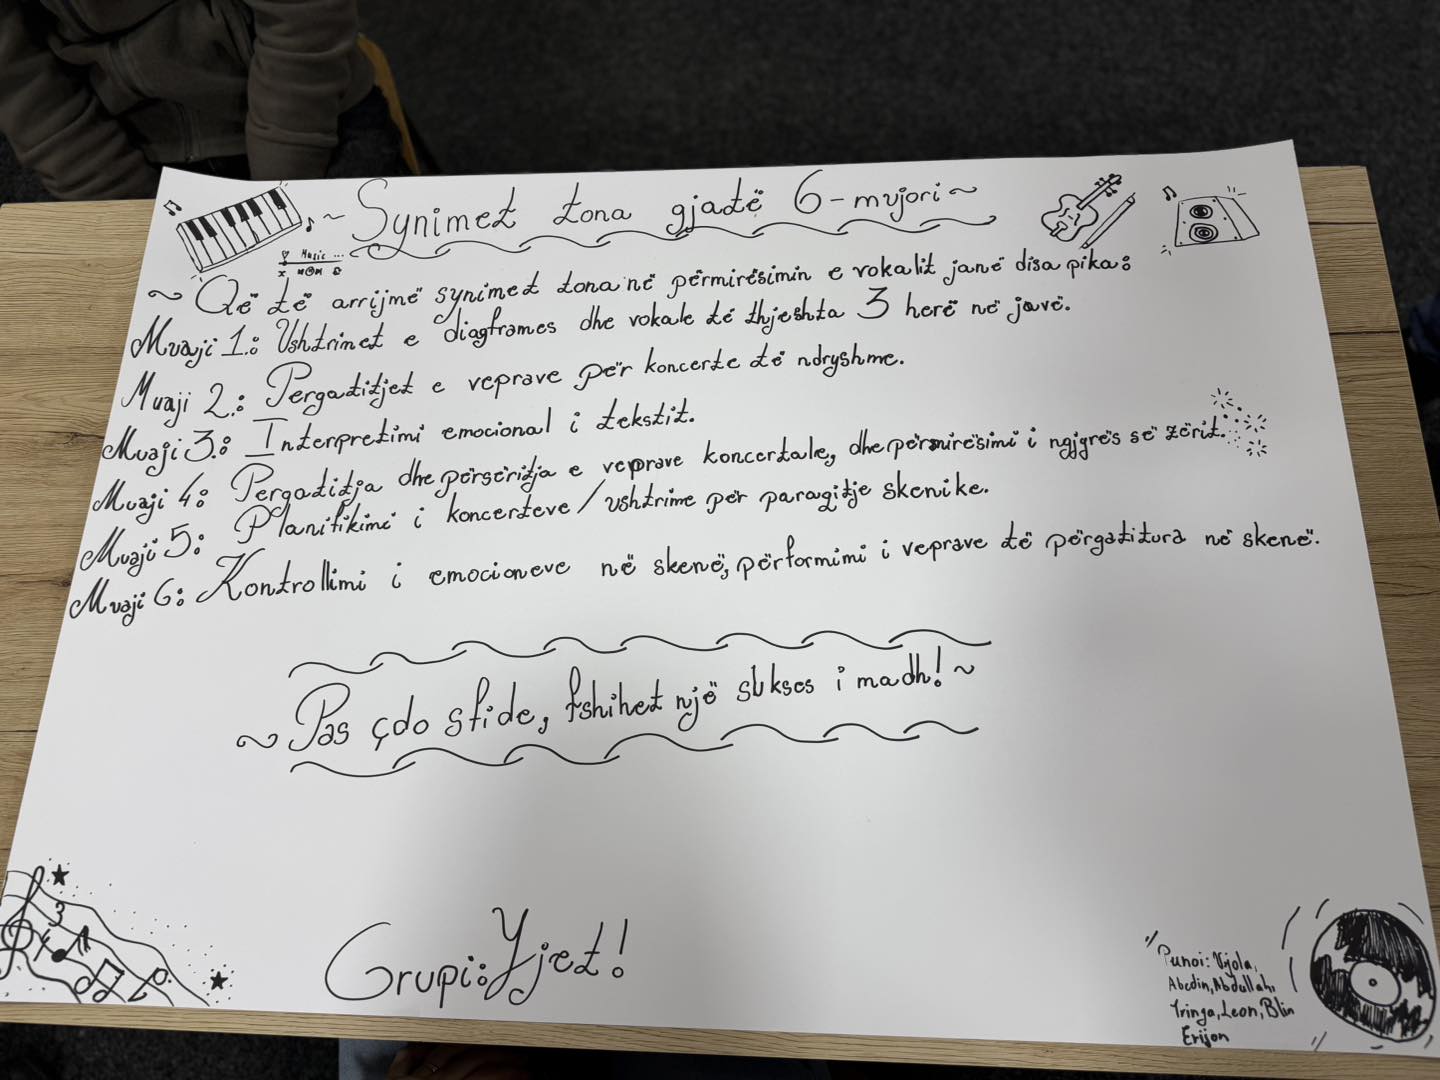 ~ Synimet tona gjatë 6-mujori ~
Music ...
~ Që të arrijmë synimet tona në përmirësimin e vokalit janë disa pika:
Muaji 1.: Ushtrimet e diagframes dhe vokale të thjeshta 3 herë në javë.
Muaji 2.: Pergatitjet e veprave për koncerte të ndryshme.
Muaji 3.: Interpretimi emocional i tekstit.
Muaji 4: Pergatitja dhe përsëritja e veprave koncertale, dhe përmirësimi i ngjyrës së zërit.
Muaji 5: Planifikimi i koncerteve / ushtrime për paraqitje skenike.
Muaji 6: Kontrollimi i emocioneve në skenë, përformimi i veprave të përgatitura në skenë.
~ Pas çdo sfide, fshihet një sukses i madh! ~
Grupi: Yjet!
Punoi: Vjola,
Abedin, Abdullah,
Tringa, Leon, Blin
Erijon